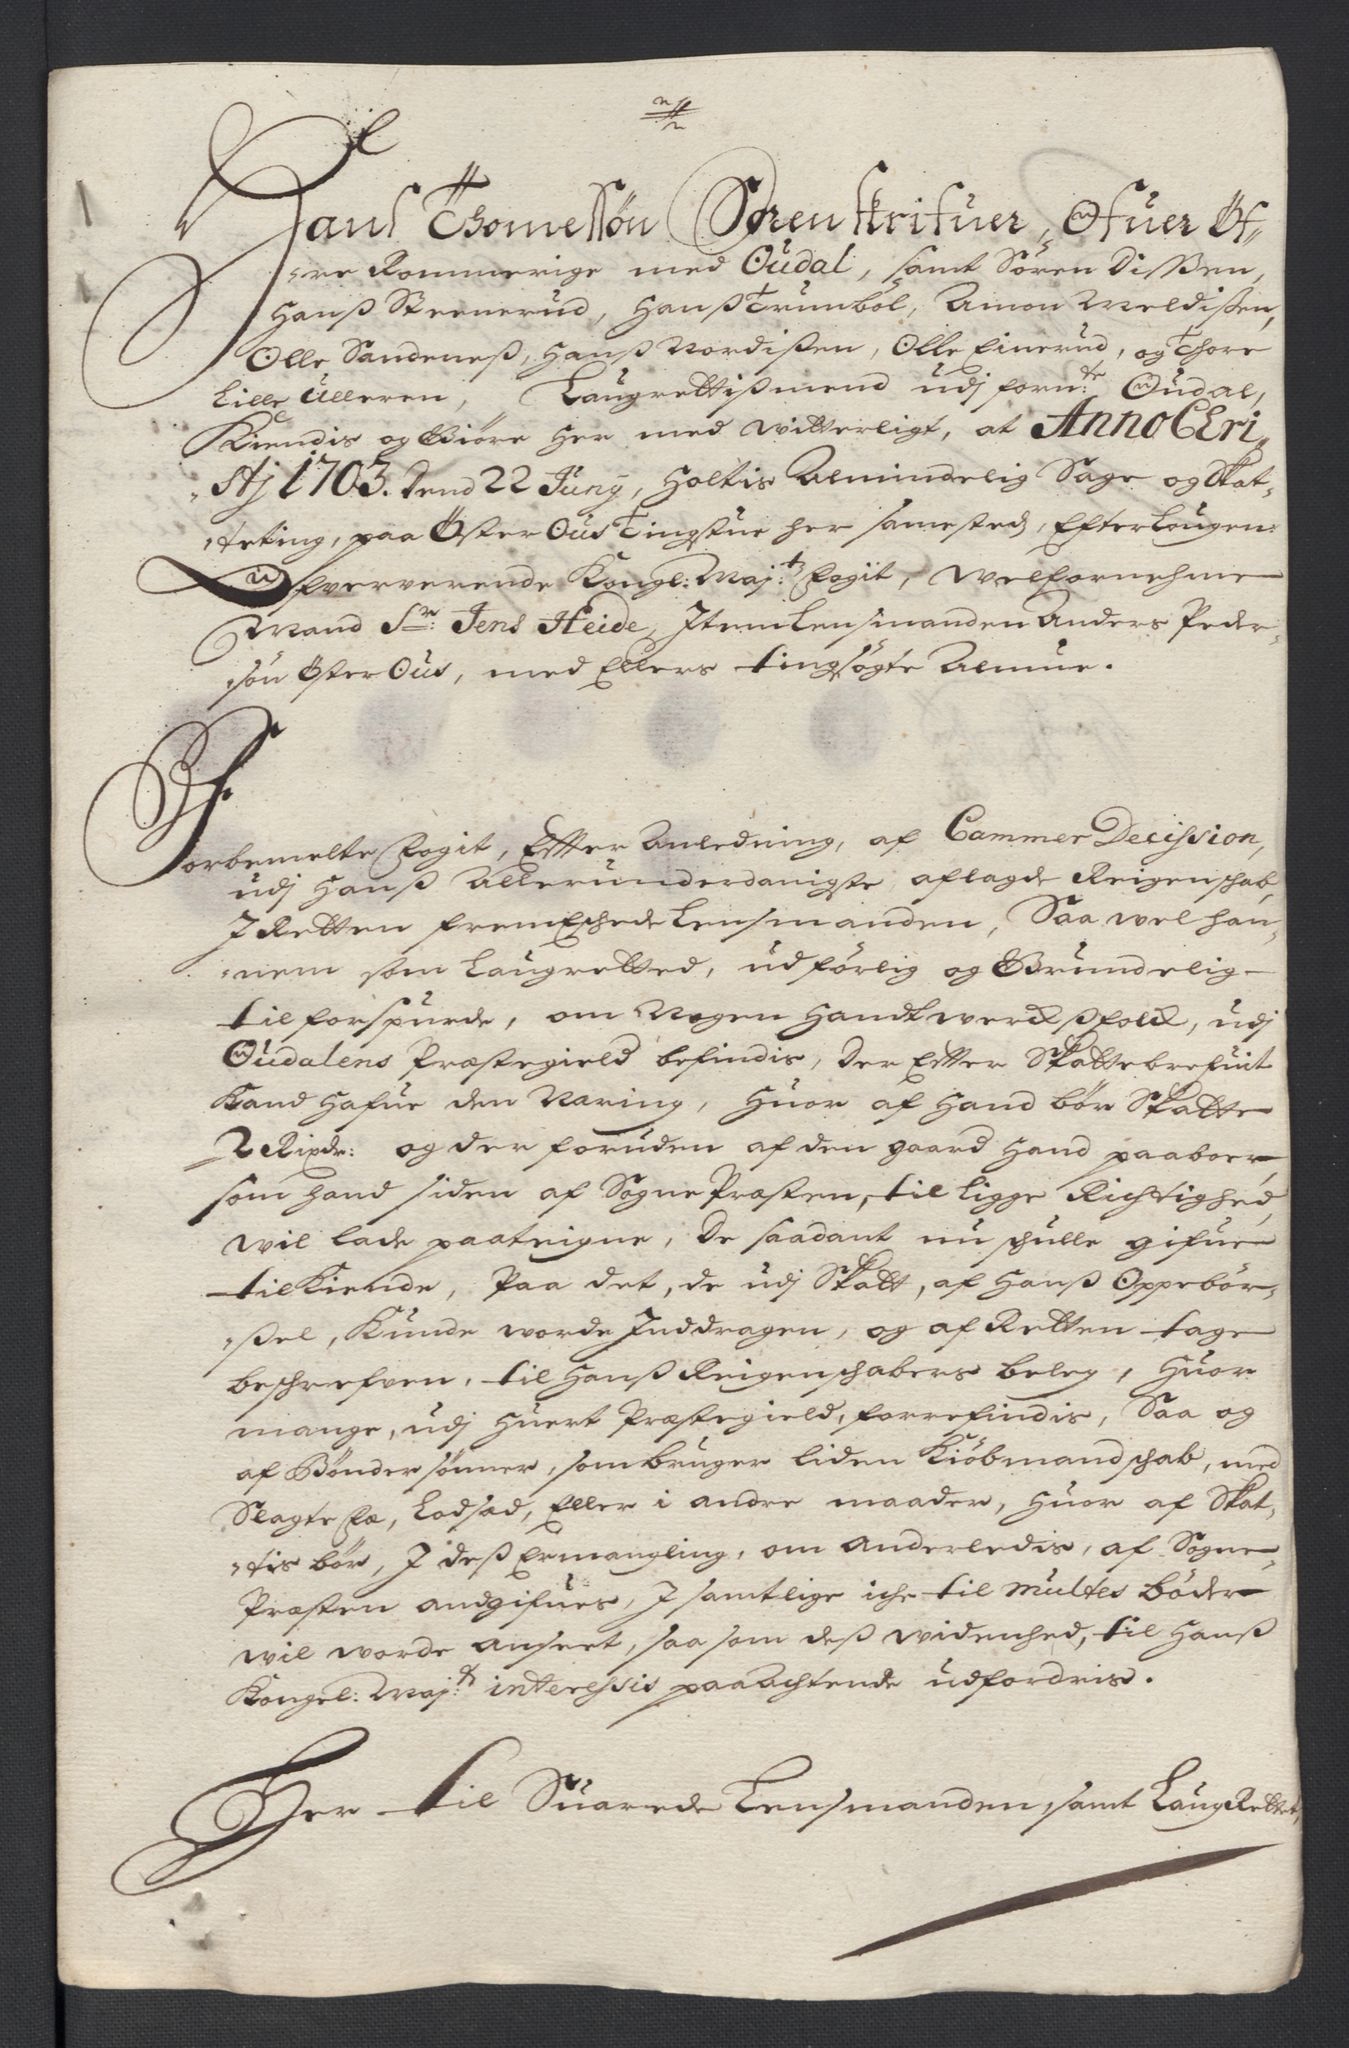 Jans Thomessøn Sorenskrifuer, Ofuer Øf,,
,,re Rommerige med Oudal, samt Søren Dissen,
Hanß Steenerud, Hanß Trunbøl, Amon Meldissen,
Olle Sandeneß, Hanß Nordissen, Olle Einerud, og Thore
Lille Ulleren, Laugrettißmend udj forn:te Oudal,
Kiendis og Giøre her med witterligt, at Anno CEri,,
,,stj 1703. Dend 22 Junij, Holtis Almindelig Sage og Skat,,
,,teting, paa Øster Ous Tingstue her samesteds, Efter Lougen:
Ofververende Kongl: Maj:ts Fogit, Welfornehme
Mand Sr: Jens Heide, Item Lensmanden Anders Peder,,
,,søn Øster Ous, med Ellers tingsøgte Almue.
Forbemelte Fogit, Efter Anledning, af Cammer Decission,
udj Hanß Allerunderdanigste aflagde Reigenschab,
J Retten fremEschede Lensmanden, Saa wel han,,
,,nem som Laugretted, udførlig og Grundelig
tilforspurde, om Nogen Handtwerchsfolch, udj
Oudalens Præstegield befindis, Der Efter Skattebrefuit
Kand Hafue den Næring, Huor af Hand bør Skatte
2 Rixdr: og der foruden af den gaard Hand paaboer,
som hand siden af Sogne Præsten, til ligge Richtighed,
wil lade paateigne, De saadant nu schulle gifue
tilKiende, Paa det, de udj Skatt, af Hanß Oppebør,,
,,ßel, Kunde worde Jnddragen, og af Retten tage
beschrefven, til Hanß Reigenschabers beleg, Huor
mange, udj Huert Præstegield, forrefindis, Saa og
af Bønder sønner, som bruger liden Kiøbmandschab, med
Slagte Fæ, Lodsæd, Eller i andre maader, Huor af Skat,,
,,tis bør, J deß Ermangling, om Anderledis, af Sogne,,
Præsten andgifues, J samtlige iche til multes bøder
wil worde anseet, saa som deß widenhed, til Hanß
Kongel: Maj:ts interessis paaAchtende udfordris.
Her til Suarede Lensmanden, samt LaugRettet,